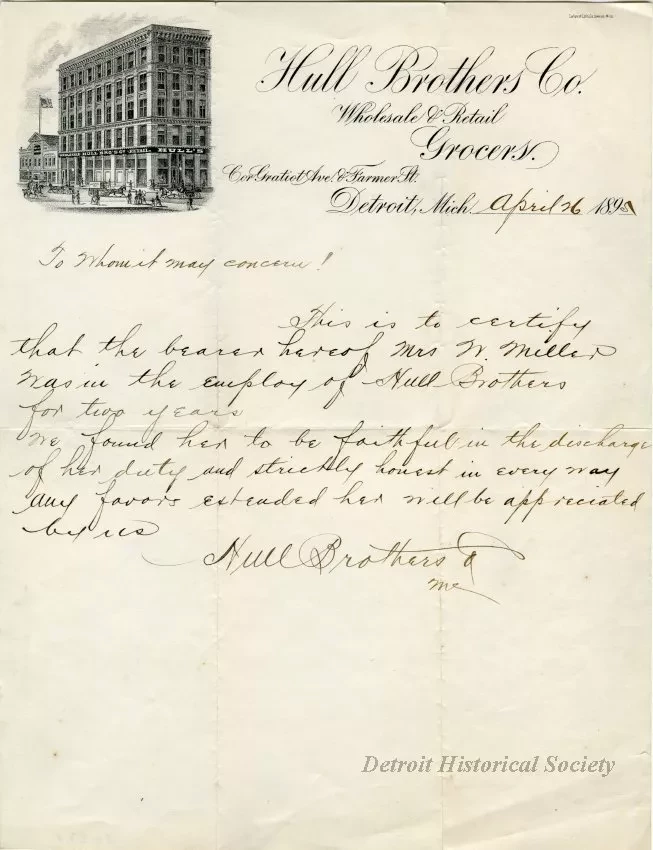 Hull Brothers Co.
Wholesale & Retail
Grocers.
Cor Gratiot Ave. & Farmer St.
Detroit, Mich. April 26 1895
WHOLESALE HULL BRO'S CO. RETAIL. HULL'S
To Whom it may concern!
This is to certify
that the bearer hereof Mrs W. Miller
was in the employ of Hull Brothers
for two years
We found her to be faithful in the discharge
of her duty and strictly honest in every way
any favors extended her will be appreciated
by us
Hull Brothers
Mc
Detroit Historical Society